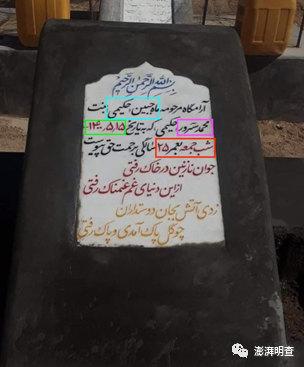 بسم الله الرحمن الرحیم
آرامگاه مرحومه ماه جبین حکیمی بنت
محمد سرور حکیمی که به تاریخ ۱۴۰۰٫۵٫۱۵
شب جمعه بعمر ۲۵ سالگی برحمت حق پیوست
جوان نازنین در خاک رفتی
از این دنیای غم غمناک رفتی
زدی آتش بجان دوستداران
چو گل پاک آمدی و پاک رفتی
澎湃明查